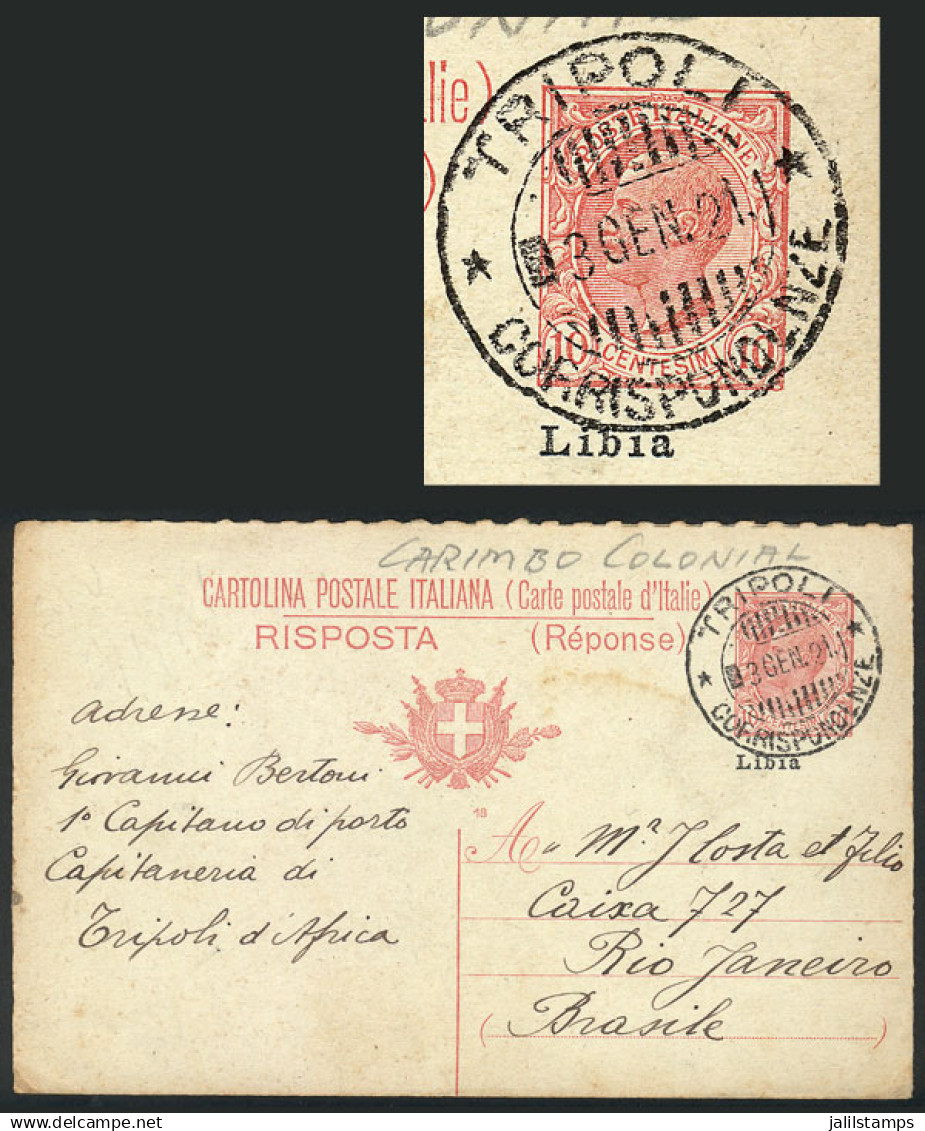 lie)
TRIPOLI
POSTE ITALIANE
3 GEN. 21.
10 CENTESIMI 10
CORRISPONDENZE
Libia
CARIMBO COLONIAL
CARTOLINA POSTALE ITALIANA (Carte postale d'Italie)
RISPOSTA (Réponse)
TRIPOLI
3 GEN. 21.
CORRISPONDENZE
Libia
Adresse:
Giovanni Bertoni
1º Capitano di porto
Capitaneria di
Tripoli d'Africa
18
A Mr J Costa et Filio
Caixa 727
Rio Janeiro
Brasile
jalilstamps